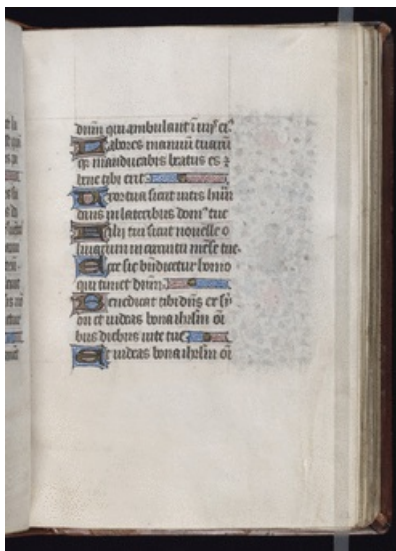 dnm̄ qui ambulant ī vijs ei⁹
Labores manuum tuarū
qꝫ manducabis beatus es ⁊
bene tibi erit
Uxor tua sicut vitis hūn
dans in lateribus dom⁹ tue
Filij tui sicut nouelle o
liuarum in circuitu mēse tue.
Ecce sic bn̄dicetur homo
qui timet dnm̄.
Benedicat tibi dn̄s ex sy
on et videas bona ihrlm̄ oī
bus diebus vite tue
Et videas bona ihrlm̄ oī